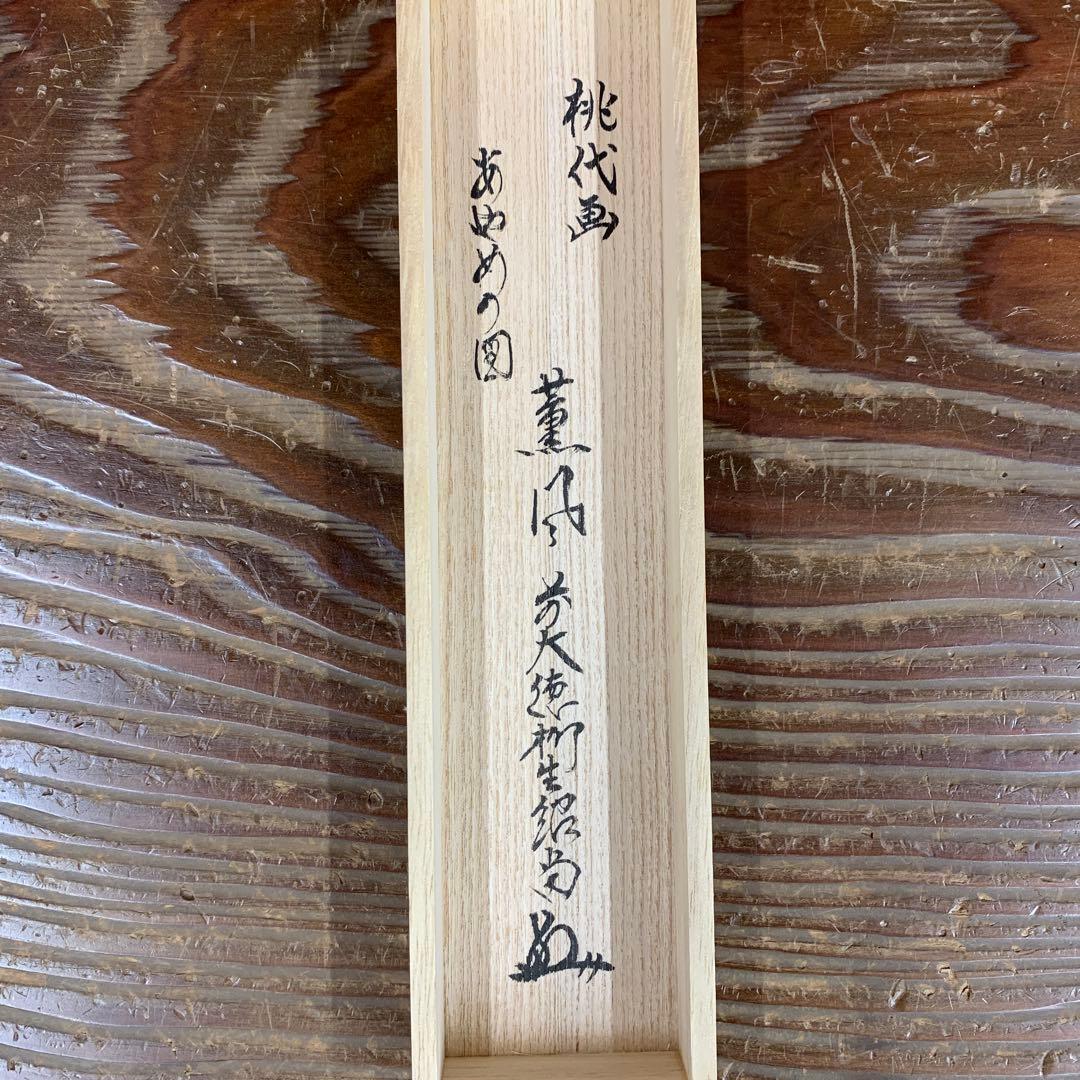 桃代画
あやめの図
薫風
前大徳柳生紹尚